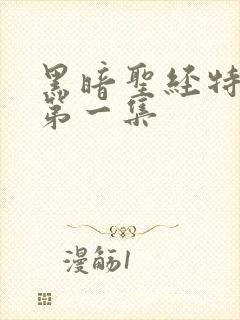 黑暗聖经特
第一集
漫觞1